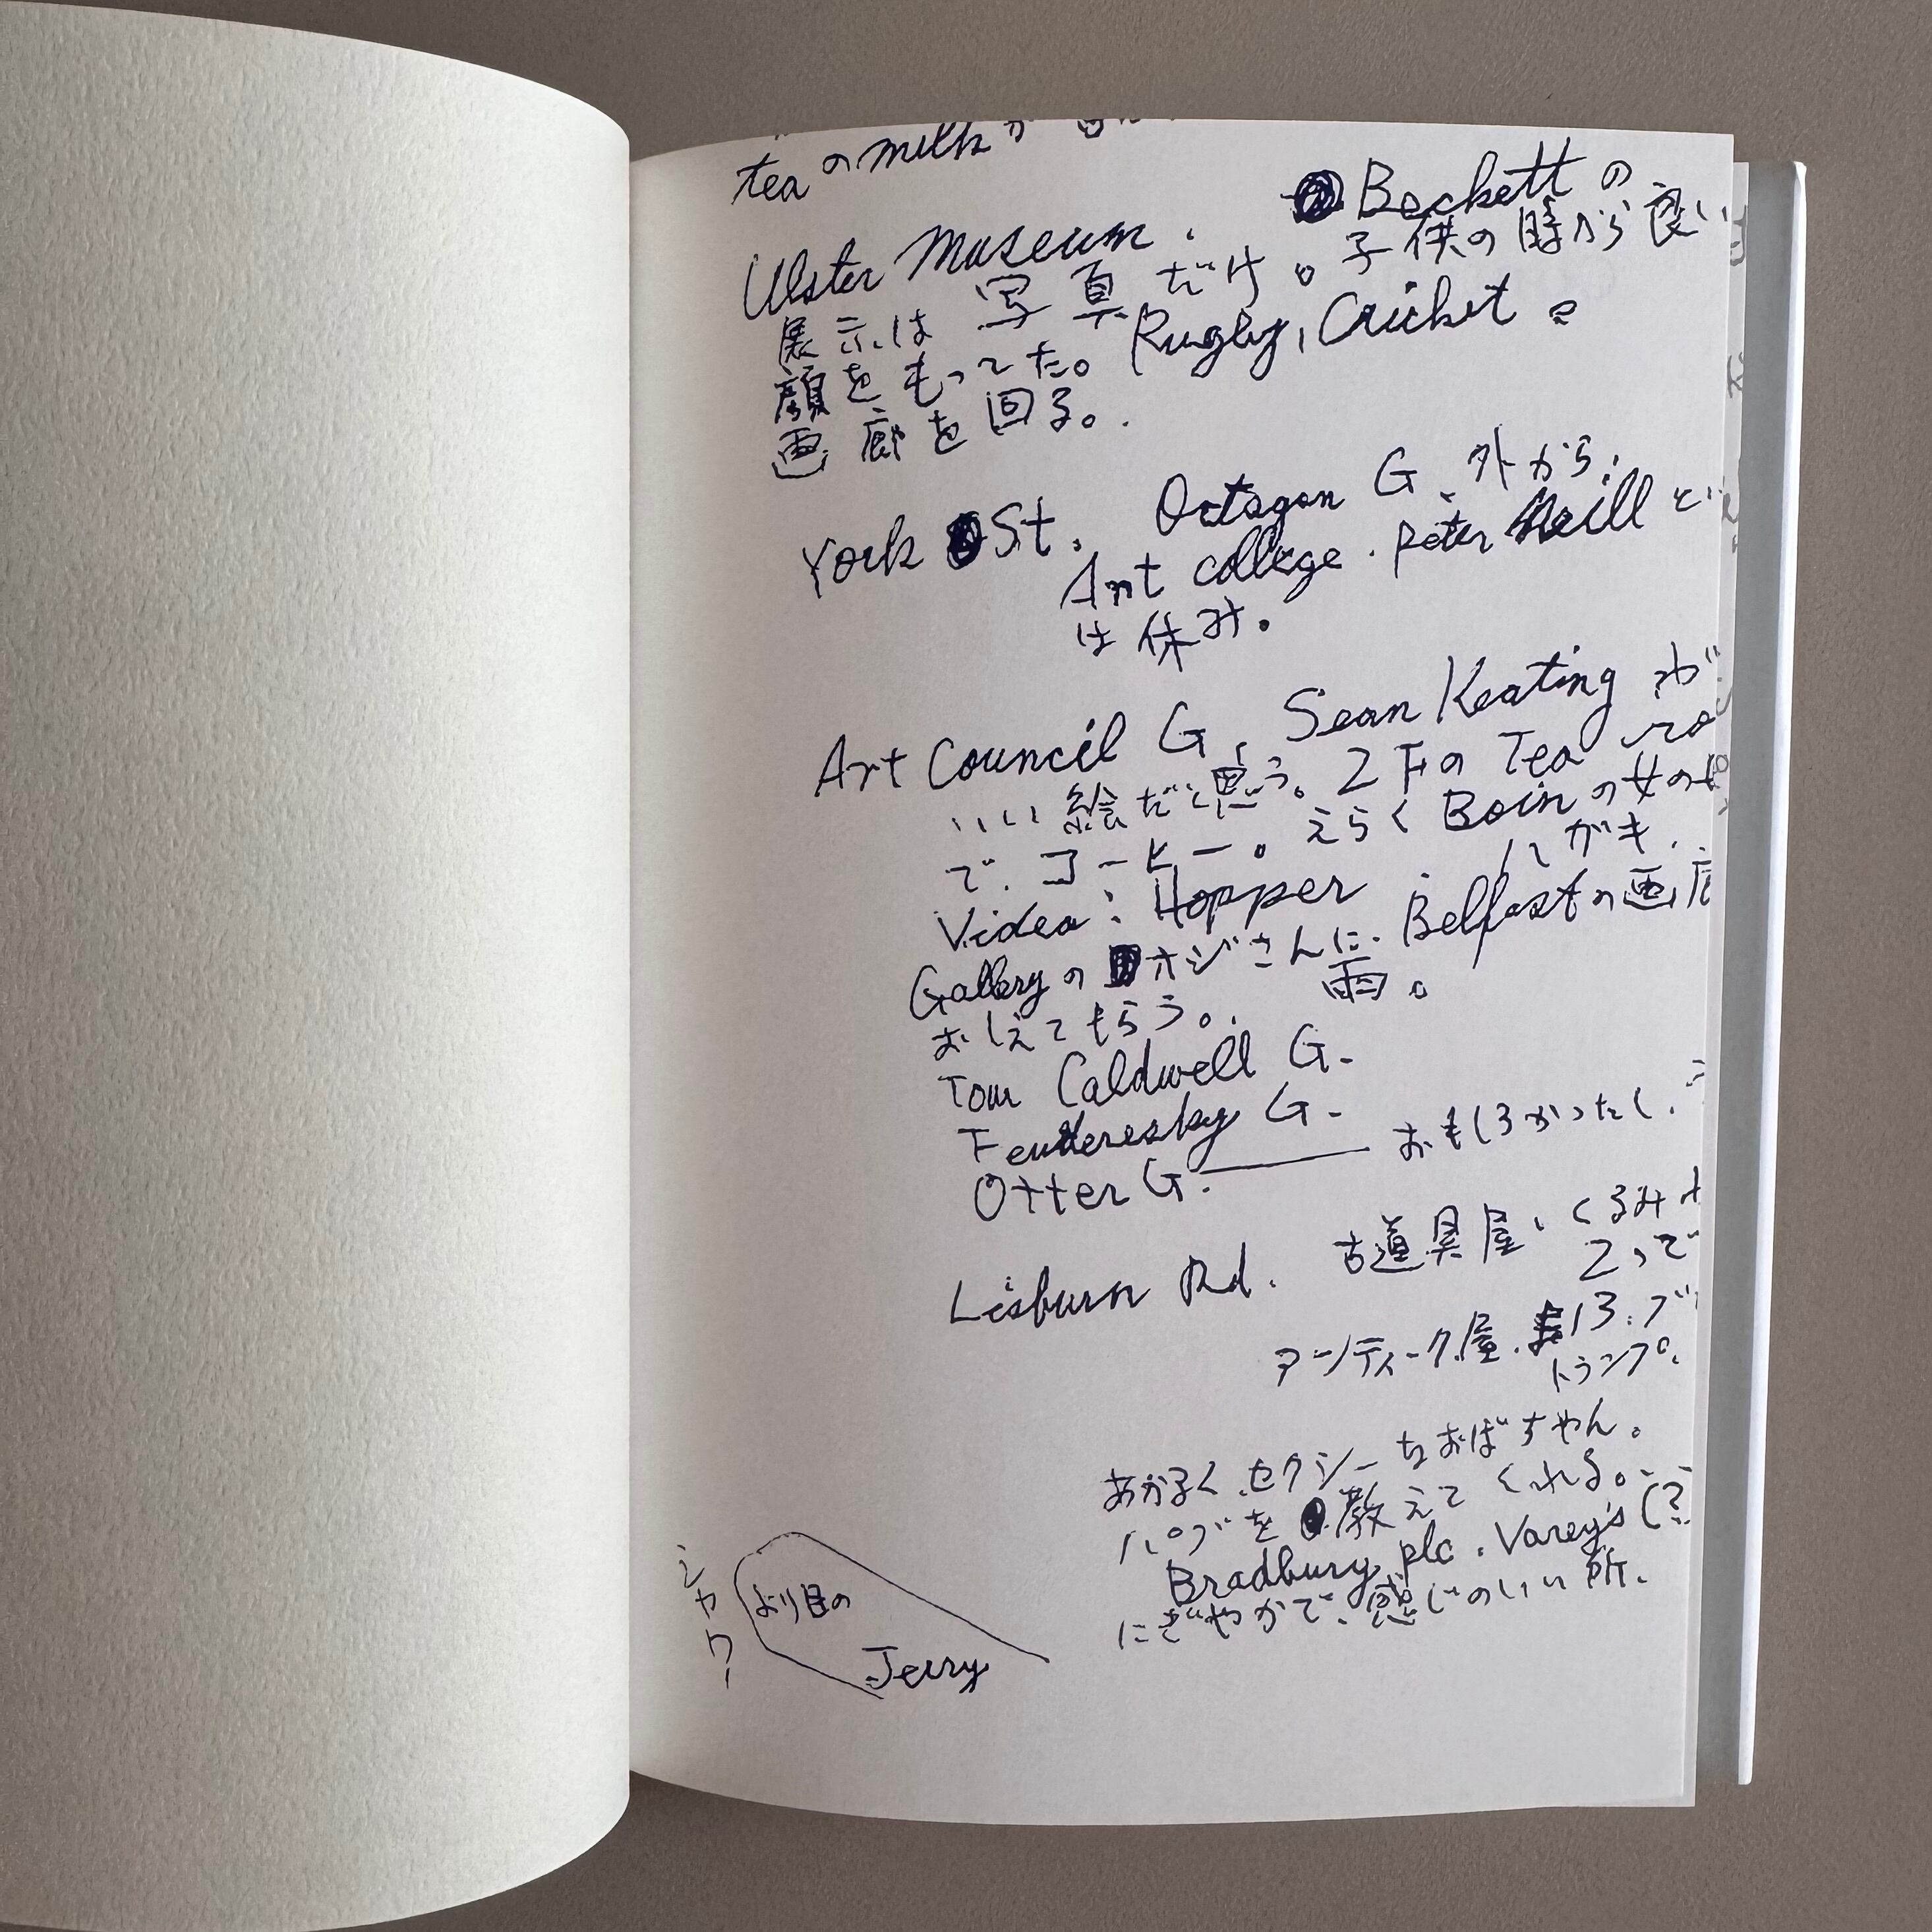 tea の milk が
Ulster Museum. Beckett の
展示は写真だけ。子供の時から良い
顔をもってた。Rugby, Cricket
画廊を回る。
York St. Octagon G. 外から.
Art college. Peter Neill と
は休み。
Art Council G. Sean Keating が
いい絵だと思う。2Fの Tea roo
で.コーヒー。えらく Boin の女の
Video: Hopper. ハガキ.
Gallery の オジさんに. Belfast の画
おしえてもらう。. 雨。
Tom Caldwell G.
Fenderesky G.
Otter G. おもしろかったし.
Lisburn Rd. 古道具屋、くるみ
2つで
アンティーク屋. 13.ブ
トランプ.
あかるくセクシーなおばちゃん。
パブを教えてくれる。
Bradbury plc. Varey's (?
にぎやかで、感じのいい所.
シャワー
より目の
Jerry